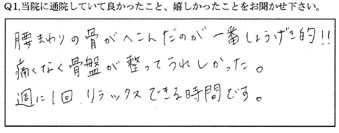 Q1,当院に通院していて良かったこと、嬉しかったことをお聞かせ下さい。
腰まわりの骨がへこんだのが一番しょうげき的!!
痛くなく骨盤が整ってうれしかった。
週に1回、リラックスできる時間です。